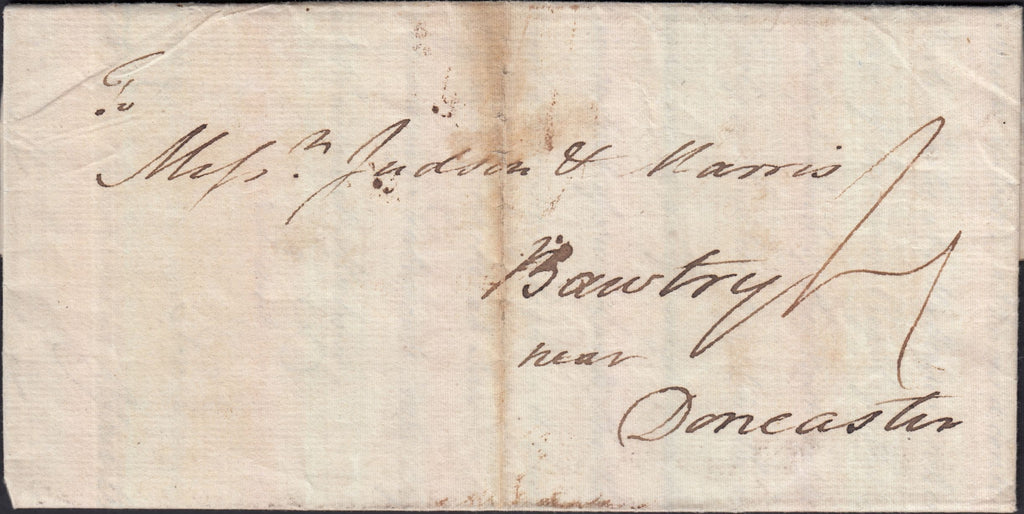 To
Messrs. Judson & Harris
Bawtry
near
Doncaster